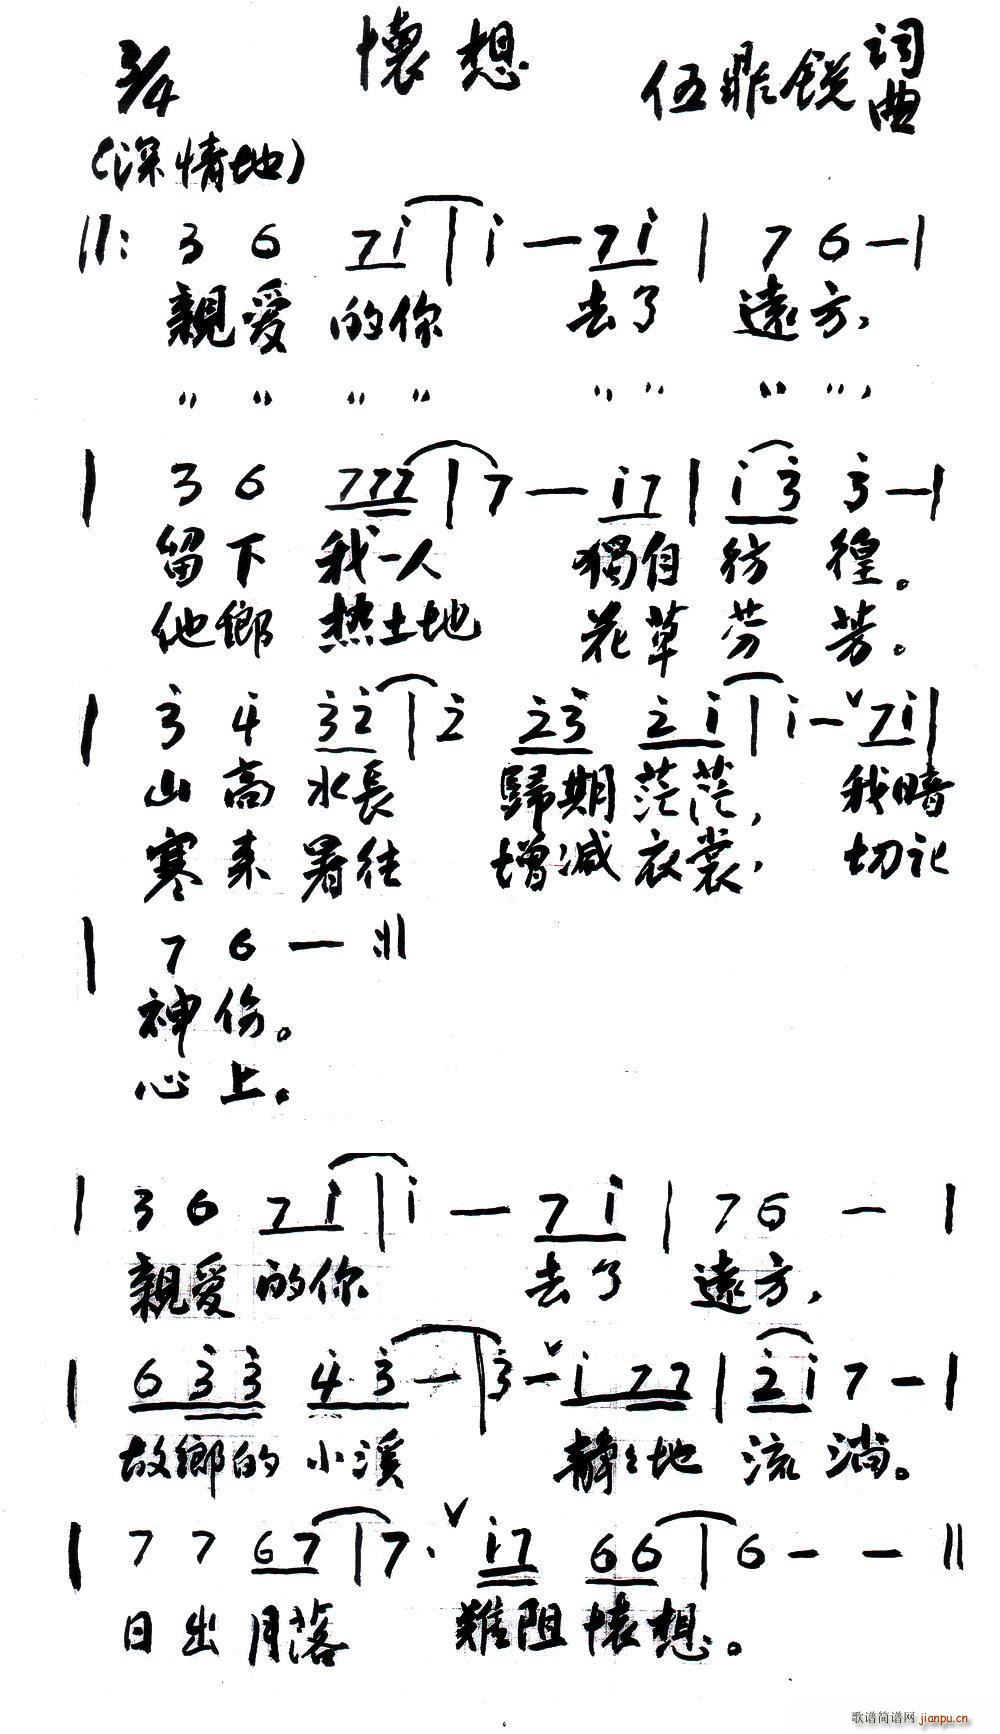 懷想
3/4
伍鼎銳 詞曲
(深情地)
||: 3 6 7i | i — 7i | 7 6 — |
親愛的你 去了 遠方,
〃 〃 〃 〃 〃 〃 〃 〃,
| 3 6 777 | 7 — i7 | i3 3 — |
留下我一人 獨自彷徨。
他鄉熱土地 花草芬芳。
| 3 4 32 | 2 23 2i | i — ∨ 7i |
山高水長 歸期茫茫, 我暗
寒来暑往 增減衣裳, 切记
| 7 6 — :||
神伤。
心上。
| 3 6 7i | i — 7i | 7 6 — |
親愛的你 去了 遠方,
| 6 33 4 3 — | 3 — ∨ i 77 | 2i 7 — |
故鄉的小溪 靜々地流淌。
| 7 7 67 | 7 · ∨ i7 66 | 6 — — ||
日出月落 難阻懷想。
歌谱简谱网 jianpu.cn